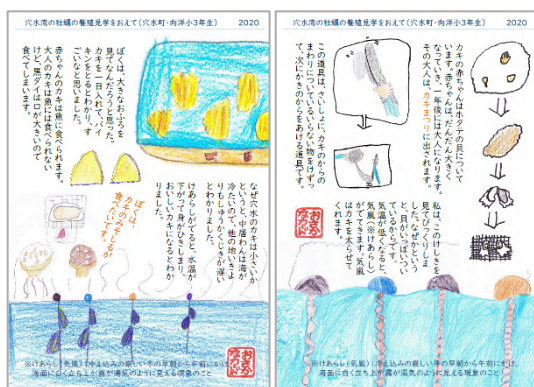 穴水湾の牡蠣の養殖見学をおえて(穴水町・向洋小3年生) 2020
ぼくは、大きなおふろを
見てなんだろうと思った。
カキを一日入れて、バイ
キンをとるとわかり、す
ごいなと思いました。
赤ちゃんのカキは魚に食べられます。
大人のカキは魚には食べられない
けど、黒ダイは口が大きいので
食べてしまいます。
なぜ穴水のカキは小さいか
というと、中居わんは海が
冷たいので、他の地いきよ
りもしゅうかくじきが遅い
とわかりました。
けあらしがでると、水温が
下がって身がひきしまり、
おいしいカキになるとわか
りました。
ぼくは
カキのみそしるが
食べたいです。
※けあらし(気嵐):冷え込みの厳しい冬の早朝から午前にかけ、
海面に白く立ち上がり霧が湯気のように見える現象のこと
穴水湾の牡蠣の養殖見学をおえて(穴水町・向洋小3年生) 2020
カキの赤ちゃんはホタテの貝について
います。赤ちゃんは、だんだん大きく
なっていき、一年後には大人になります。
その大人は、カキまつりに出されます。
この道具は、さいしょに、カキのからの
まわりについているいらない物をけずっ
て、次にかきのからをあける道具です。
私は、このけしきを
見てびっくりしま
した。なぜかという
と、貝がいっぱいつい
ているからです。
気温が低くなると、
気嵐(※けあらし)
がでてきます。気嵐
はカキを太らせて
くれます。
※けあらし(気嵐):冷え込みの厳しい冬の早朝から午前にかけ、
海面に白く立ち上がり霧が湯気のように見える現象のこと